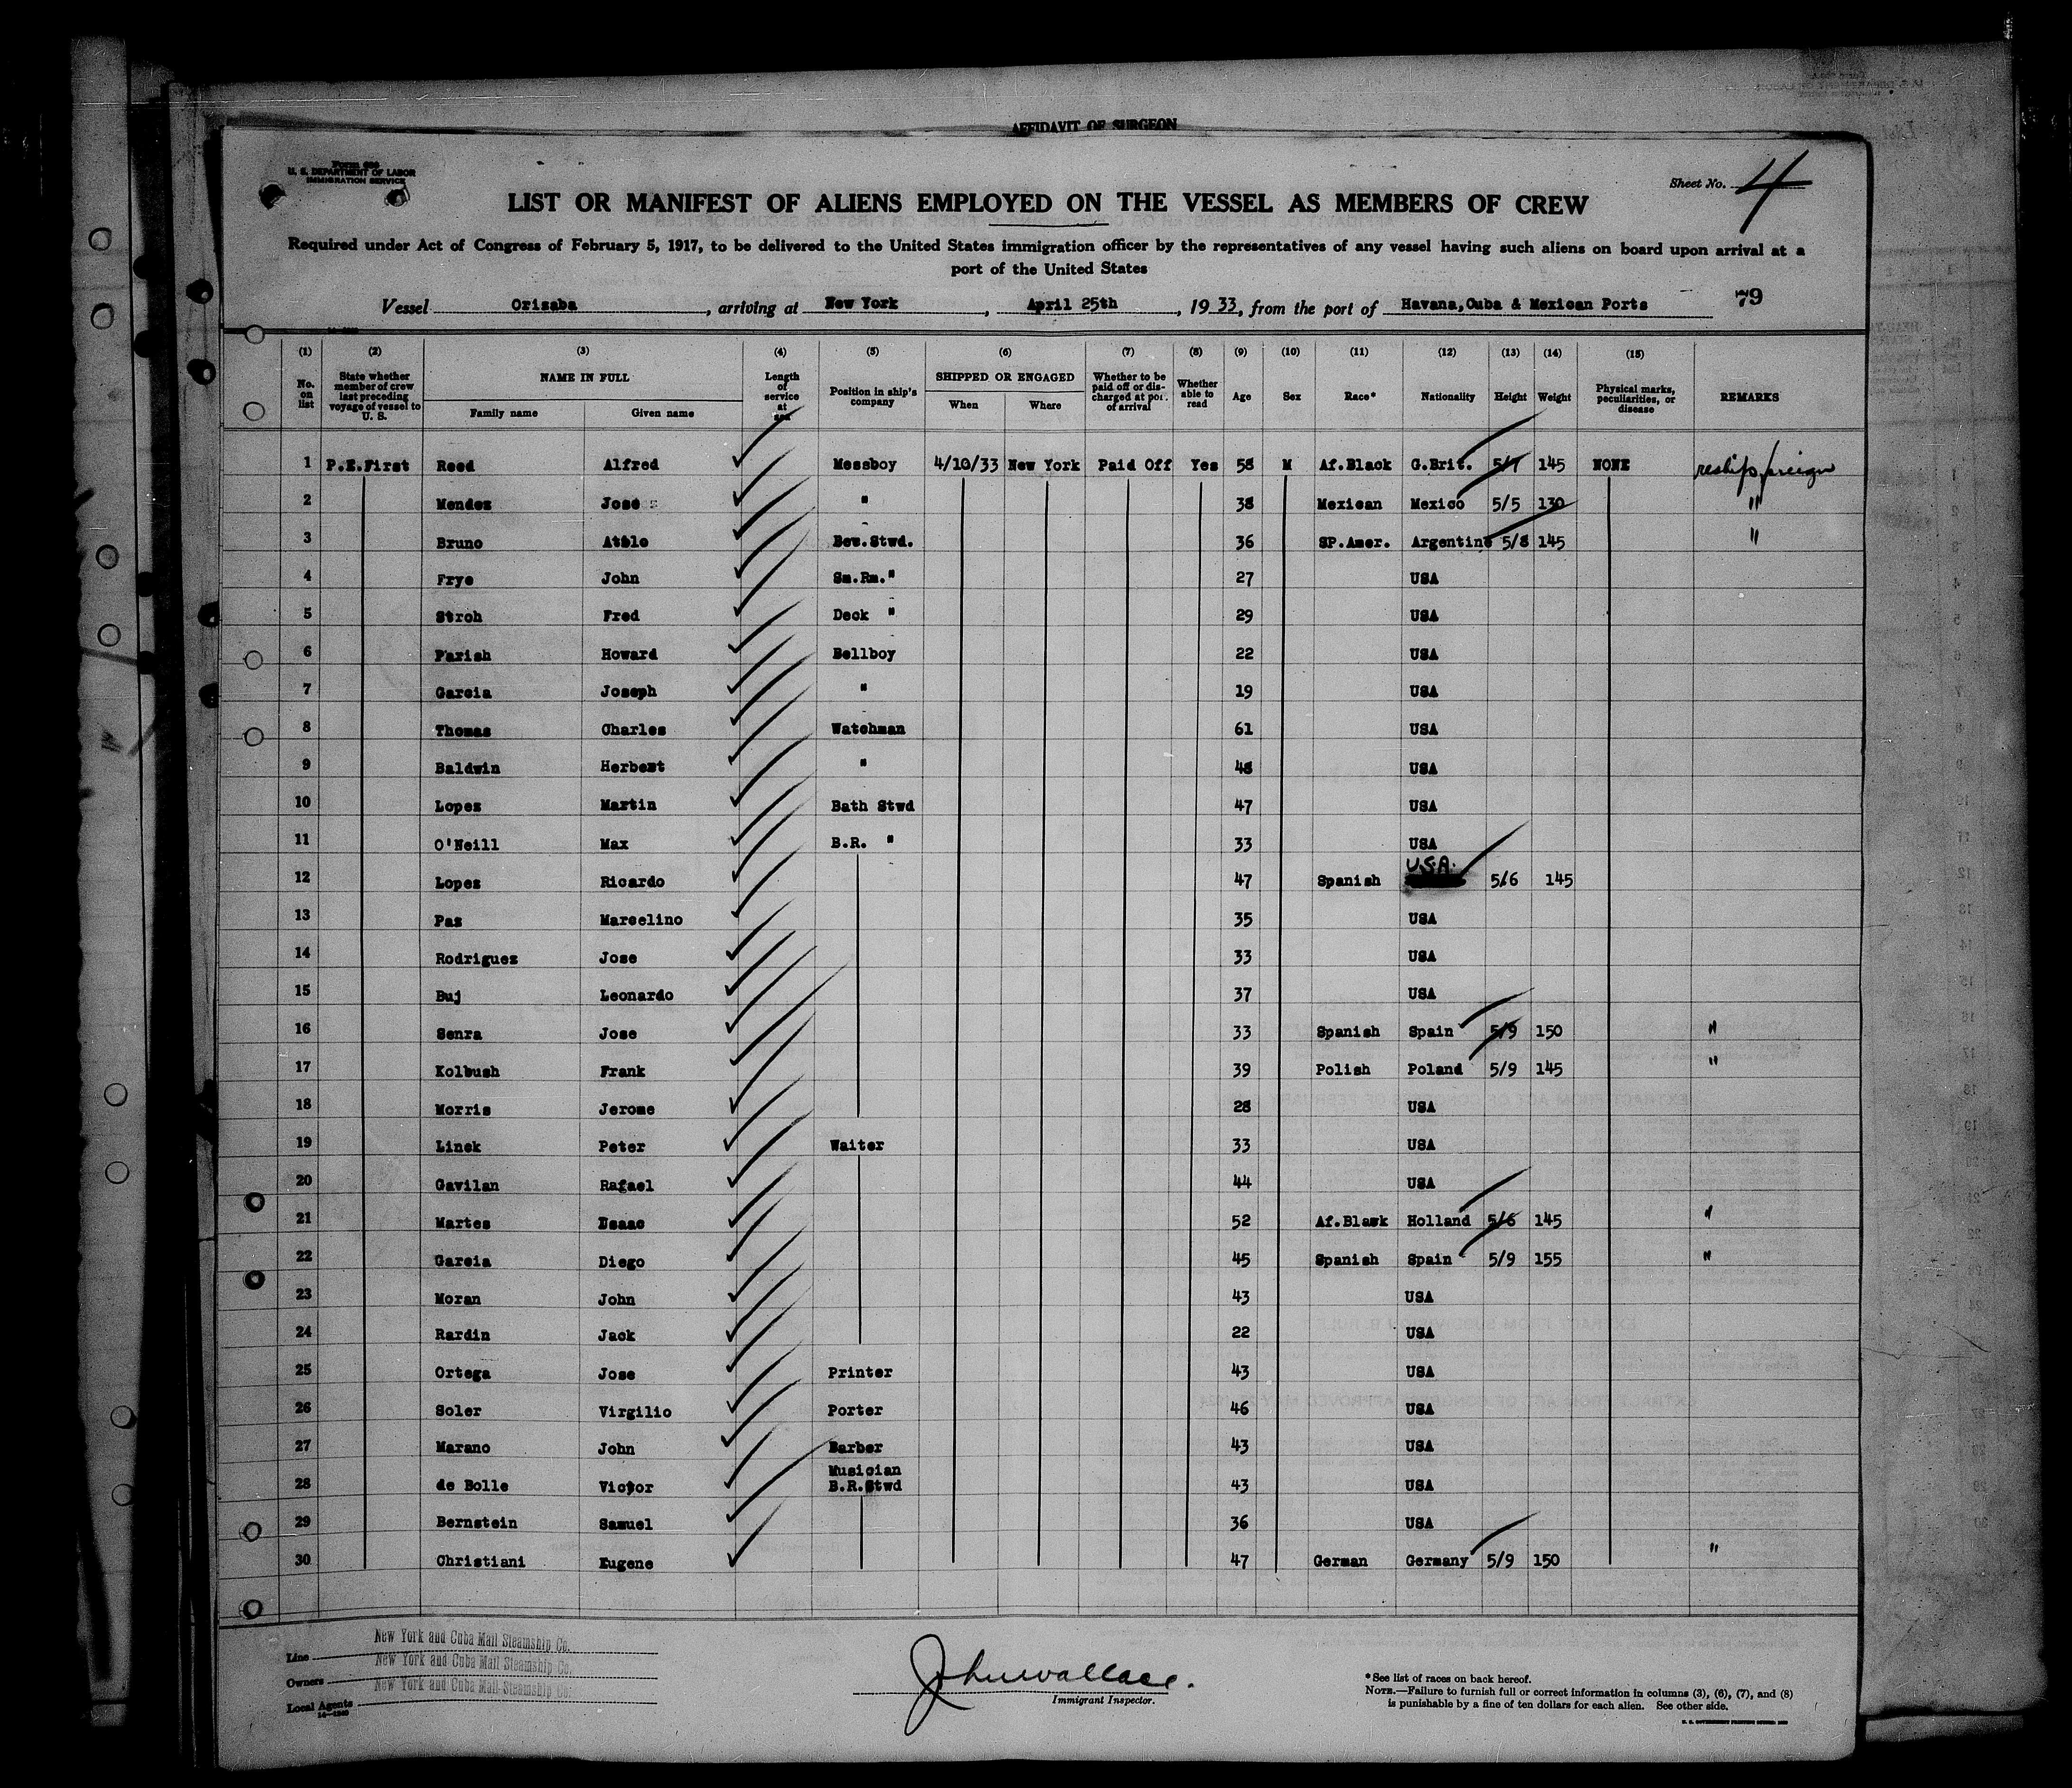 AFFIDAVIT OF SURGEON
U. S. DEPARTMENT OF LABOR
IMMIGRATION SERVICE
Sheet No. 4
LIST OR MANIFEST OF ALIENS EMPLOYED ON THE VESSEL AS MEMBERS OF CREW
Required under Act of Congress of February 5, 1917, to be delivered to the United States immigration officer by the representatives of any vessel having such aliens on board upon arrival at a
port of the United States
Vessel Orizaba, arriving at New York, April 25th, 1933, from the port of Havana,Cuba & Mexican Ports 79
(1) (2) (3) (4) (5) (6) (7) (8) (9) (10) (11) (12) (13) (14) (15)
No. on list State whether member of crew last preceding voyage of vessel to U. S. NAME IN FULL Family name Given name Length of service at sea Position in ship's company SHIPPED OR ENGAGED When Where Whether to be paid off or discharged at port of arrival Whether able to read Age Sex Race* Nationality Height Weight Physical marks, peculiarities, or disease REMARKS
1 P.E.First Reed Alfred Messboy 4/10/33 New York Paid Off Yes 58 M Af.Black G.Brit. 5/7 145 NONE reship foreign
2 Mendez Jose " 38 Mexican Mexico 5/5 130 "
3 Bruno Bev.Stwd. 36 SP.Amer. Argentine 5/8 145 "
4 Frye John Sm.Rm." 27 USA
5 Stroh Fred Deck " 29 USA
6 Parish Howard Bellboy 22 USA
7 Garcia Joseph " 19 USA
8 Thomas Charles Watchman 61 USA
9 Baldwin Herbert " 48 USA
10 Lopez Martin Bath Stwd 47 USA
11 O'Neill Max B.R. " 33 USA
12 Lopez Ricardo 47 Spanish U.S.A. 5/6 145
13 Paz Marcelino 35 USA
14 Rodriguez Jose 33 USA
15 Buj Leonardo 37 USA
16 Senra Jose 33 Spanish Spain 5/9 150 "
17 Kolbush Frank 39 Polish Poland 5/9 145 "
18 Morris Jerome 28 USA
19 Linek Peter Waiter 33 USA
20 Gavilan Rafael 44 USA
21 Martes Isaac 52 Af.Black Holland 5/6 145 "
22 Garcia Diego 45 Spanish Spain 5/9 155 "
23 Moran John 43 USA
24 Rardin Jack 22 USA
25 Ortega Jose Printer 43 USA
26 Soler Virgilio Porter 46 USA
27 Marano John Barber 43 USA
28 de Bolle Victor Musician B.R.Stwd 43 USA
29 Bernstein Samuel 36 USA
30 Christiani Eugene 47 German Germany 5/9 150 "
Line New York and Cuba Mail Steamship Co.
Owners New York and Cuba Mail Steamship Co.
Local Agents New York and Cuba Mail Steamship Co.
John Wallace.
Immigrant Inspector.
*See list of races on back hereof.
NOTE.—Failure to furnish full or correct information in columns (3), (6), (7), and (8)
is punishable by a fine of ten dollars for each alien. See other side.